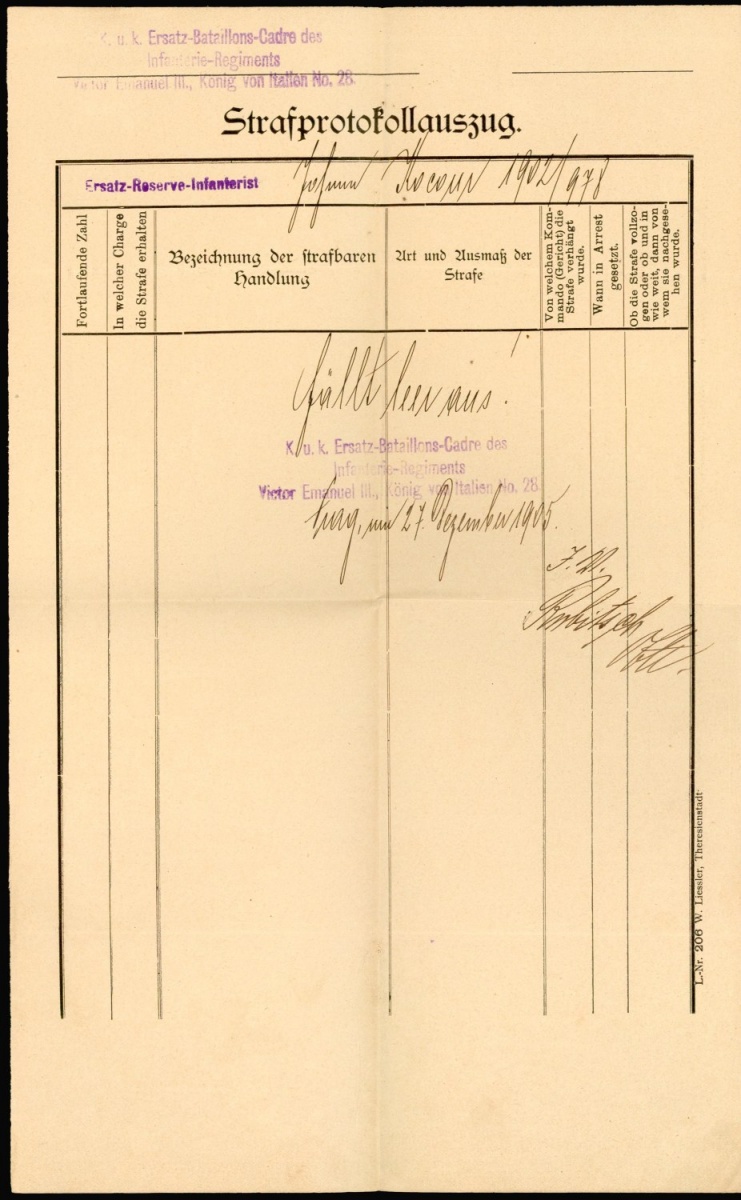 K. u. k. Ersatz-Bataillons-Cadre des
Infanterie-Regiments
Victor Emanuel III., König von Italien No. 28.
Strafprotokollauszug.
Ersatz-Reserve-Infanterist Johann Kocour 1902/978
Fortlaufende Zahl
In welcher Charge
die Strafe erhalten
Bezeichnung der strafbaren
Handlung
Art und Ausmaß der
Strafe
Von welchem Kom-
mando (Gericht) die
Strafe verhängt
wurde.
Wann in Arrest
gesetzt.
Ob die Strafe vollzo-
gen oder ob und in
wie weit, dann von
wem sie nachgese-
hen wurde.
fällt leer aus!
K. u. k. Ersatz-Bataillons-Cadre des
Infanterie-Regiments
Victor Emanuel III., König von Italien No. 28.
Prag, am 27. Dezember 1905.
I. V.
L.-Nr. 206 W. Liessler, Theresienstadt